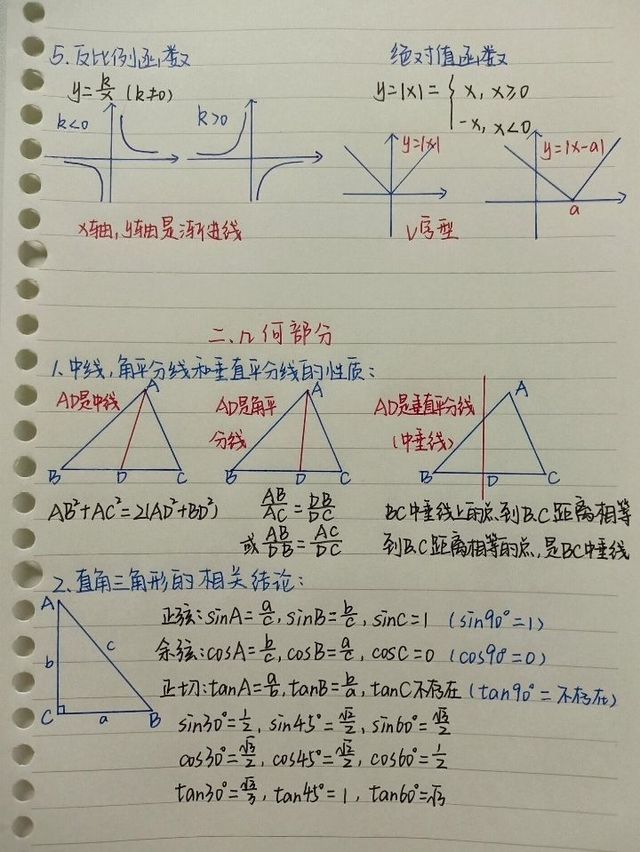 5.反比例函数
y=k/x (k≠0)
k<0
k>0
x轴,y轴是渐进线
绝对值函数
y=|x|={x, x≥0
-x, x<0
y=|x|
y=|x-a|
a
V字型
二.几何部分
1.中线,角平分线和垂直平分线的性质:
AD是中线
A
B D C
AB²+AC²=2(AD²+BD²)
AD是角平
分线
A
B D C
AB/AC=DB/DC
或AB/DB=AC/DC
AD是垂直平分线
(中垂线)
A
B D C
BC中垂线上的点到B.C距离相等
到B.C距离相等的点,是BC中垂线
2.直角三角形的相关结论:
A
b c
C a B
正弦:sinA=a/c, sinB=b/c, sinC=1 (sin90°=1)
余弦:cosA=b/c, cosB=a/c, cosC=0 (cos90°=0)
正切:tanA=a/b, tanB=b/a, tanC不存在(tan90°=不存在)
sin30°=1/2, sin45°=√2/2, sin60°=√3/2
cos30°=√3/2, cos45°=√2/2, cos60°=1/2
tan30°=√3/3, tan45°=1, tan60°=√3